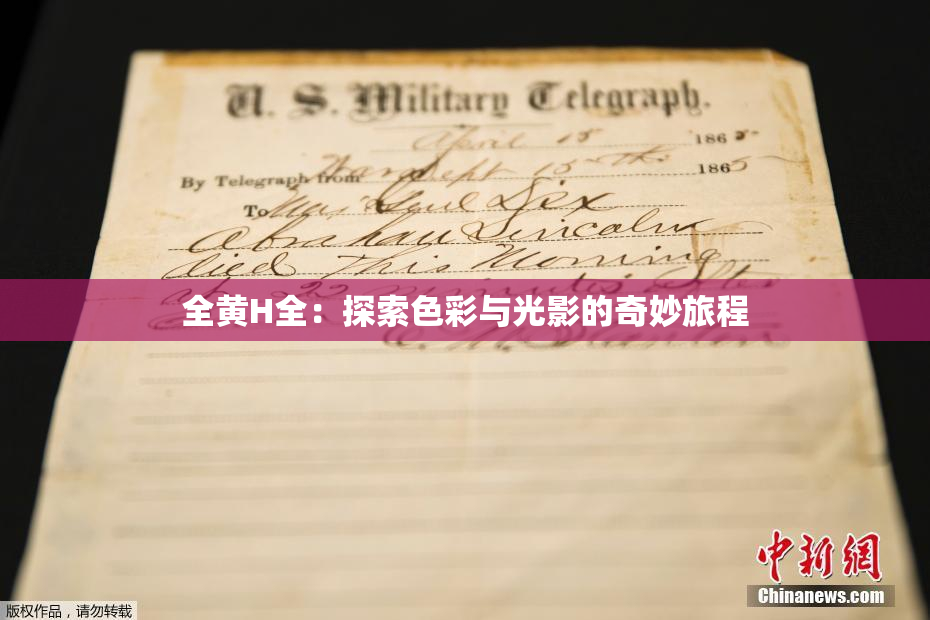 U. S. Military Telegraph.
April 15 1865
By Telegraph from War Dept 15th 1865
To Maj Genl Dix
Abraham Lincoln
died This Morning
at 22 minutes after
全黄H全：探索色彩与光影的奇妙旅程
Stanton
中新網
Chinanews.com
版权作品，请勿转载